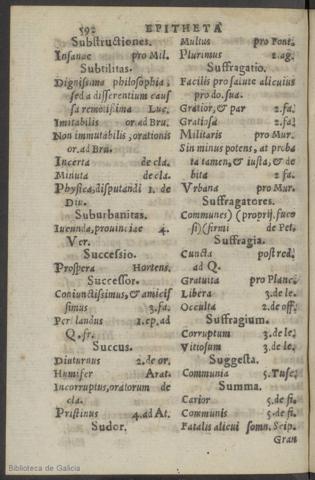 592 EPITHETA
Substructiones.
Insanae pro Mil.
Subtilitas.
Dignissima philosophia;
sed a differentium cauſ
ſa remotiſsima Luc.
Imitabilis or.ad Bru.
Non immutabilis, orationis
or.ad Bru.
Incerta de cla.
Minuta de cla.
Physica, disputandi 1. de
Diu.
Suburbanitas.
Iucunda, prouinciae 4.
Ver.
Successio.
Prospera Hortens.
Successor.
Coniunctissimus, & amiciſ
simus 3.fa.
Per laudus 1.ep.ad
Q.fr.
Succus.
Diuturnus 2.de or.
Humifer Arat.
Incorruptus, oratorum de
cla.
Pristinus 4.ad At.
Sudor.
Multus pro Font.
Plurimus 2.ag.
Suffragatio.
Facilis pro salute alicuius
pro do.sua.
Gratior, & par 2.fa.
Gratiosa 2.fa.
Militaris pro Mur.
Sin minus potens, at proba
ta tamen, & iusta, & de
bita 2 fa.
Vrbana pro Mur.
Suffragatores.
Communes) (proprij. fuco
si) (firmi de Pet.
Suffragia.
Cuncta post red.
ad Q.
Gratuita pro Planc.
Libera 3.de le.
Occulta 2.de off.
Suffragium.
Corruptum 3.de le.
Vitiosum 3.de le.
Suggesta.
Communia 5.Tusc.
Summa.
Carior 5.de fi.
Communis 5.de fi.
Fatalis alicui somn. Scip.
Gran
Biblioteca de Galicia